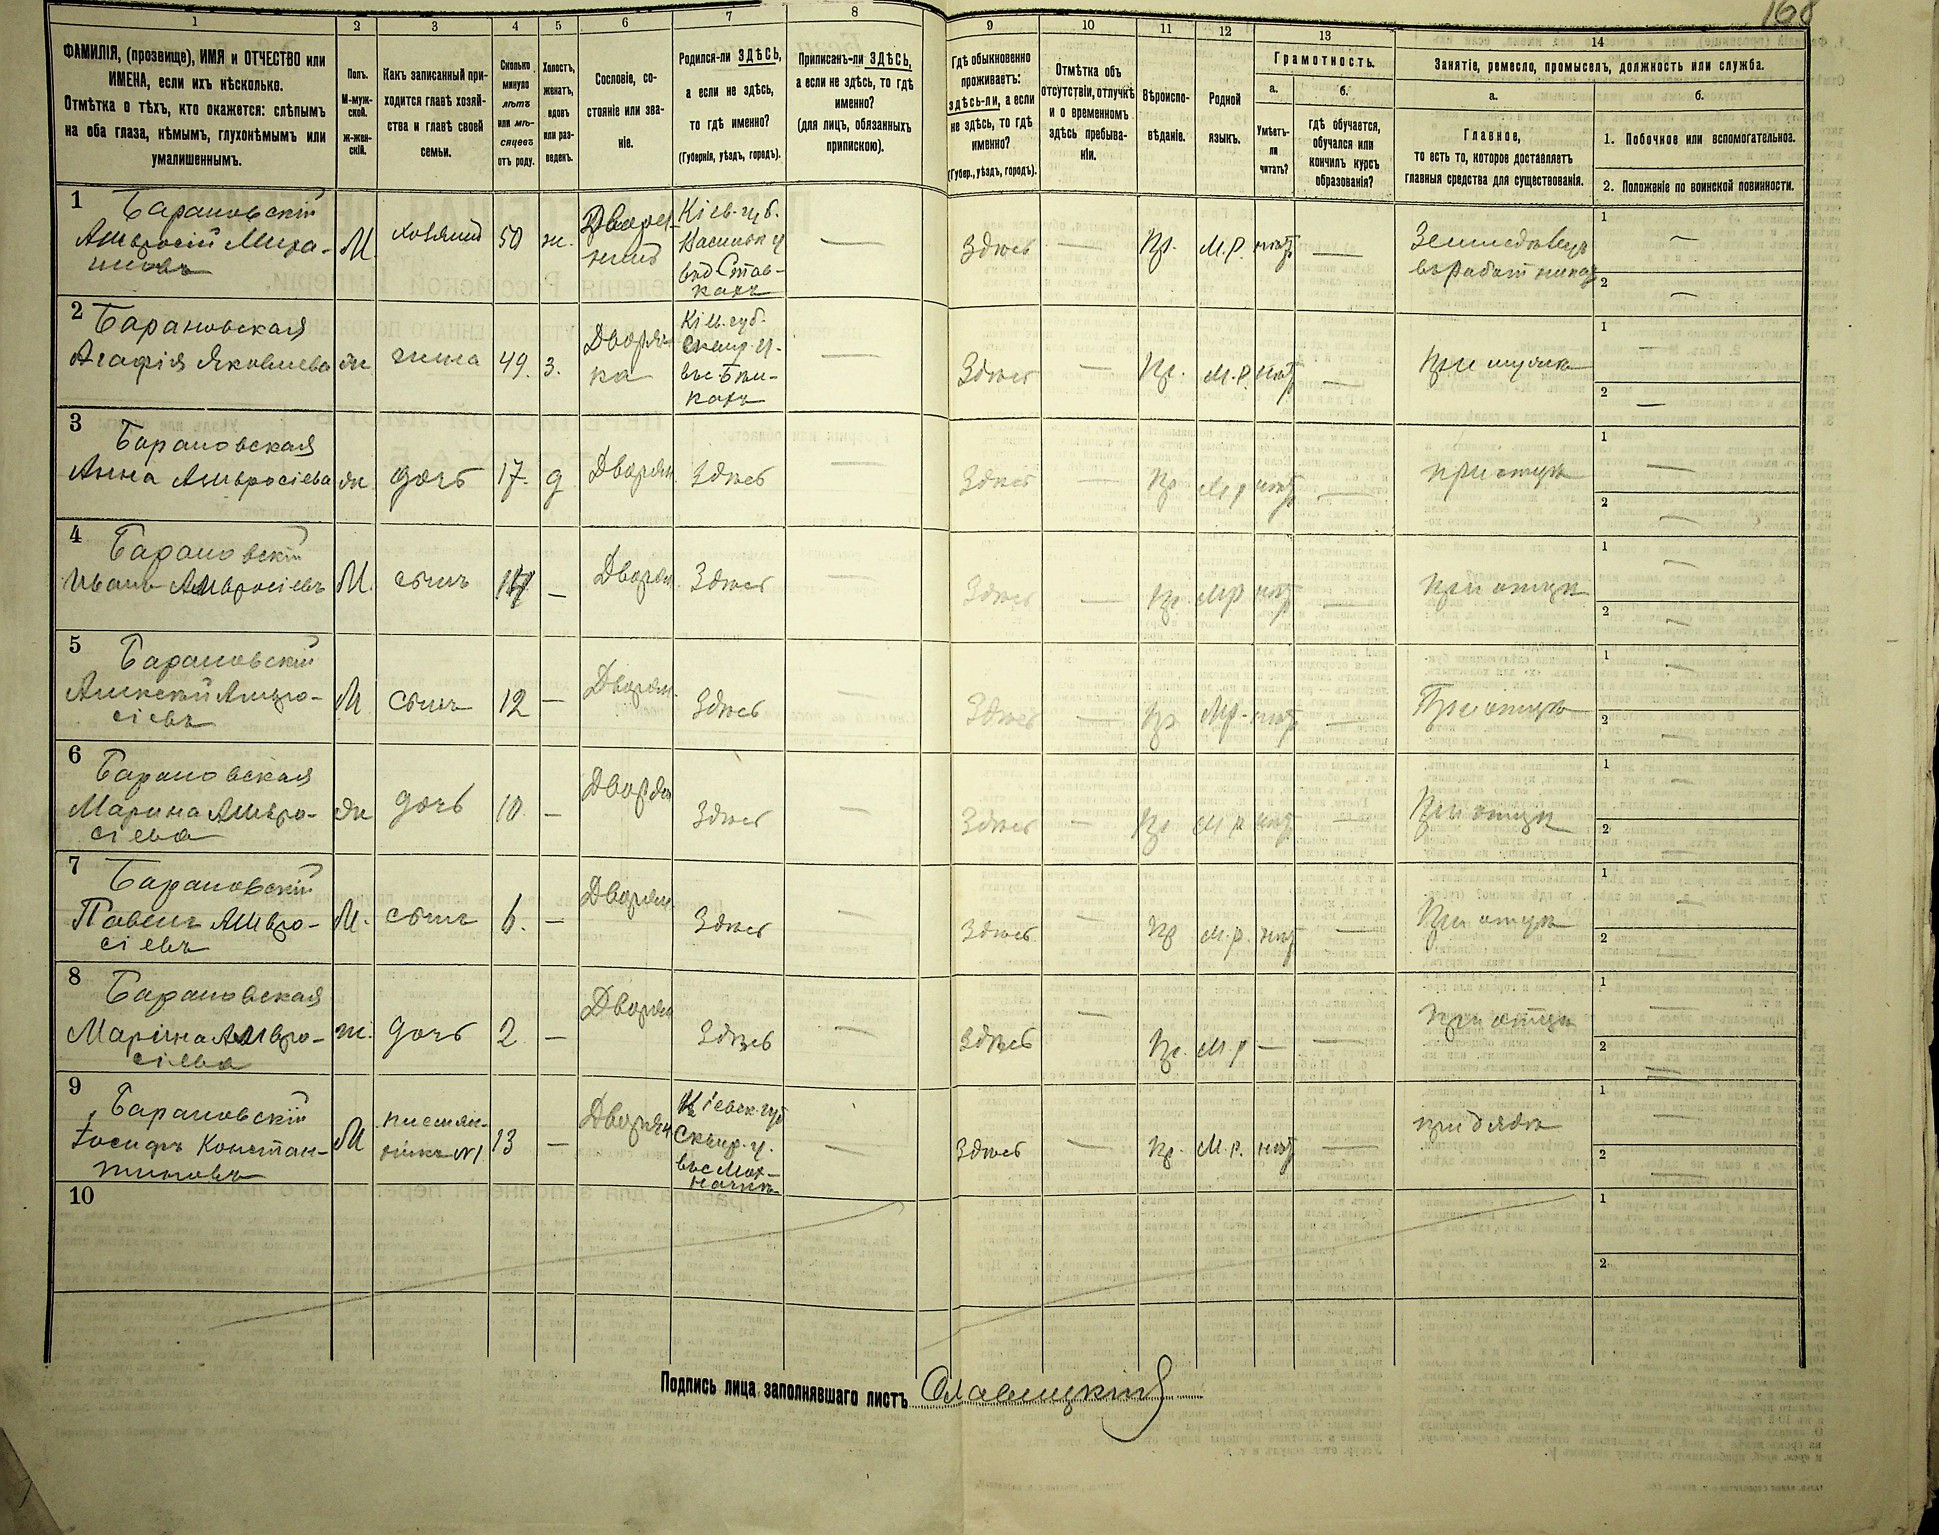 168
1 2 3 4 5 6 7 8 9 10 11 12 13 14
ФАМИЛІЯ, (прозвище), ИМЯ и ОТЧЕСТВО или
ИМЕНА, если ихъ нѣсколько.
Отмѣтка о тѣхъ, кто окажется: слѣпымъ
на оба глаза, нѣмымъ, глухонѣмымъ или
умалишеннымъ.
Полъ.
М-муж-
ской.
ж-жен-
скій.
Какъ записанный при-
ходится главѣ хозяй-
ства и главѣ своей
семьи.
Сколько
минуло
лѣтъ
или мѣ-
сяцевъ
отъ роду.
Холостъ,
женатъ,
вдовъ
или раз-
веденъ.
Сословіе, со-
стояніе или зва-
ніе.
Родился-ли ЗДѢСЬ,
а если не здѣсь,
то гдѣ именно?
(Губернія, уѣздъ, городъ).
Приписанъ-ли ЗДѢСЬ,
а если не здѣсь, то гдѣ
именно?
(для лицъ, обязанныхъ
припискою).
Гдѣ обыкновенно
проживаетъ:
здѣсь-ли, а если
не здѣсь, то гдѣ
именно?
(Губер., уѣздъ, городъ).
Отмѣтка объ
отсутствіи, отлучкѣ
и о временномъ
здѣсь пребыва-
ніи.
Вѣроиспо-
вѣданіе.
Родной
языкъ.
Грамотность.
а. б.
Умѣетъ-
ли
читать?
гдѣ обучается,
обучался или
кончилъ курсъ
образованія?
Занятіе, ремесло, промыселъ, должность или служба.
а. б.
Главное,
то есть то, которое доставляетъ
главныя средства для существованія.
1. Побочное или вспомогательное.
2. Положеніе по воинской повинности.
1 Барановскій
Амвросій
М. 50 ж. Кіев. губ.
Здѣсь — Пр. М.Р. нѣтъ —
1 —
2 —
2 Барановская
Агафія Яковлева
ж жена 49. З. Дворян
ка
Кіев. губ.
Сквир. у.
Здѣсь — Пр. М.Р. нѣтъ —
при мужѣ
1 —
2 —
3 Барановская
Анна Амвросіева ж дочь 17. д Дворян. Здѣсь — Здѣсь — Пр М р нѣтъ — при отцѣ
1 —
2 —
4 Барановскій
Иванъ Амвросіевъ М. сынъ — Дворян Здѣсь — Здѣсь — Пр. М.р. нѣтъ — при отцѣ
1 —
2 —
5 Барановскій
Алексѣй Амвро-
сіевъ
М сынъ 12 — Дворян. Здѣсь — Здѣсь — Пр М.р. нѣтъ — При отцѣ
1 —
2 —
6 Барановская
Марина Амвро-
сіева
ж дочь 10. — Дворян Здѣсь — Здѣсь — Пр М.р. нѣтъ — При отцѣ
1 —
2 —
7 Барановскій
Павелъ Амвро-
сіевъ
М. сынъ 6. — Дворян. Здѣсь — Здѣсь — Пр М.р. нѣт — При отцѣ
1 —
2 —
8 Барановская
Марина Амвро-
сіева
ж. дочь 2 — Дворян Здѣсь — Здѣсь — Пр. М.р — — при отцѣ
1 —
2 —
9 Барановскій
Іосифъ Констан-
тиновъ
М племян-
никъ №1 13 — Дворян
Кіевск. губ
Сквир. у.
— Здѣсь — Пр. М.Р. нѣт — при дядѣ
1 —
2 —
10
1
2
Подпись лица, заполнявшаго листъ